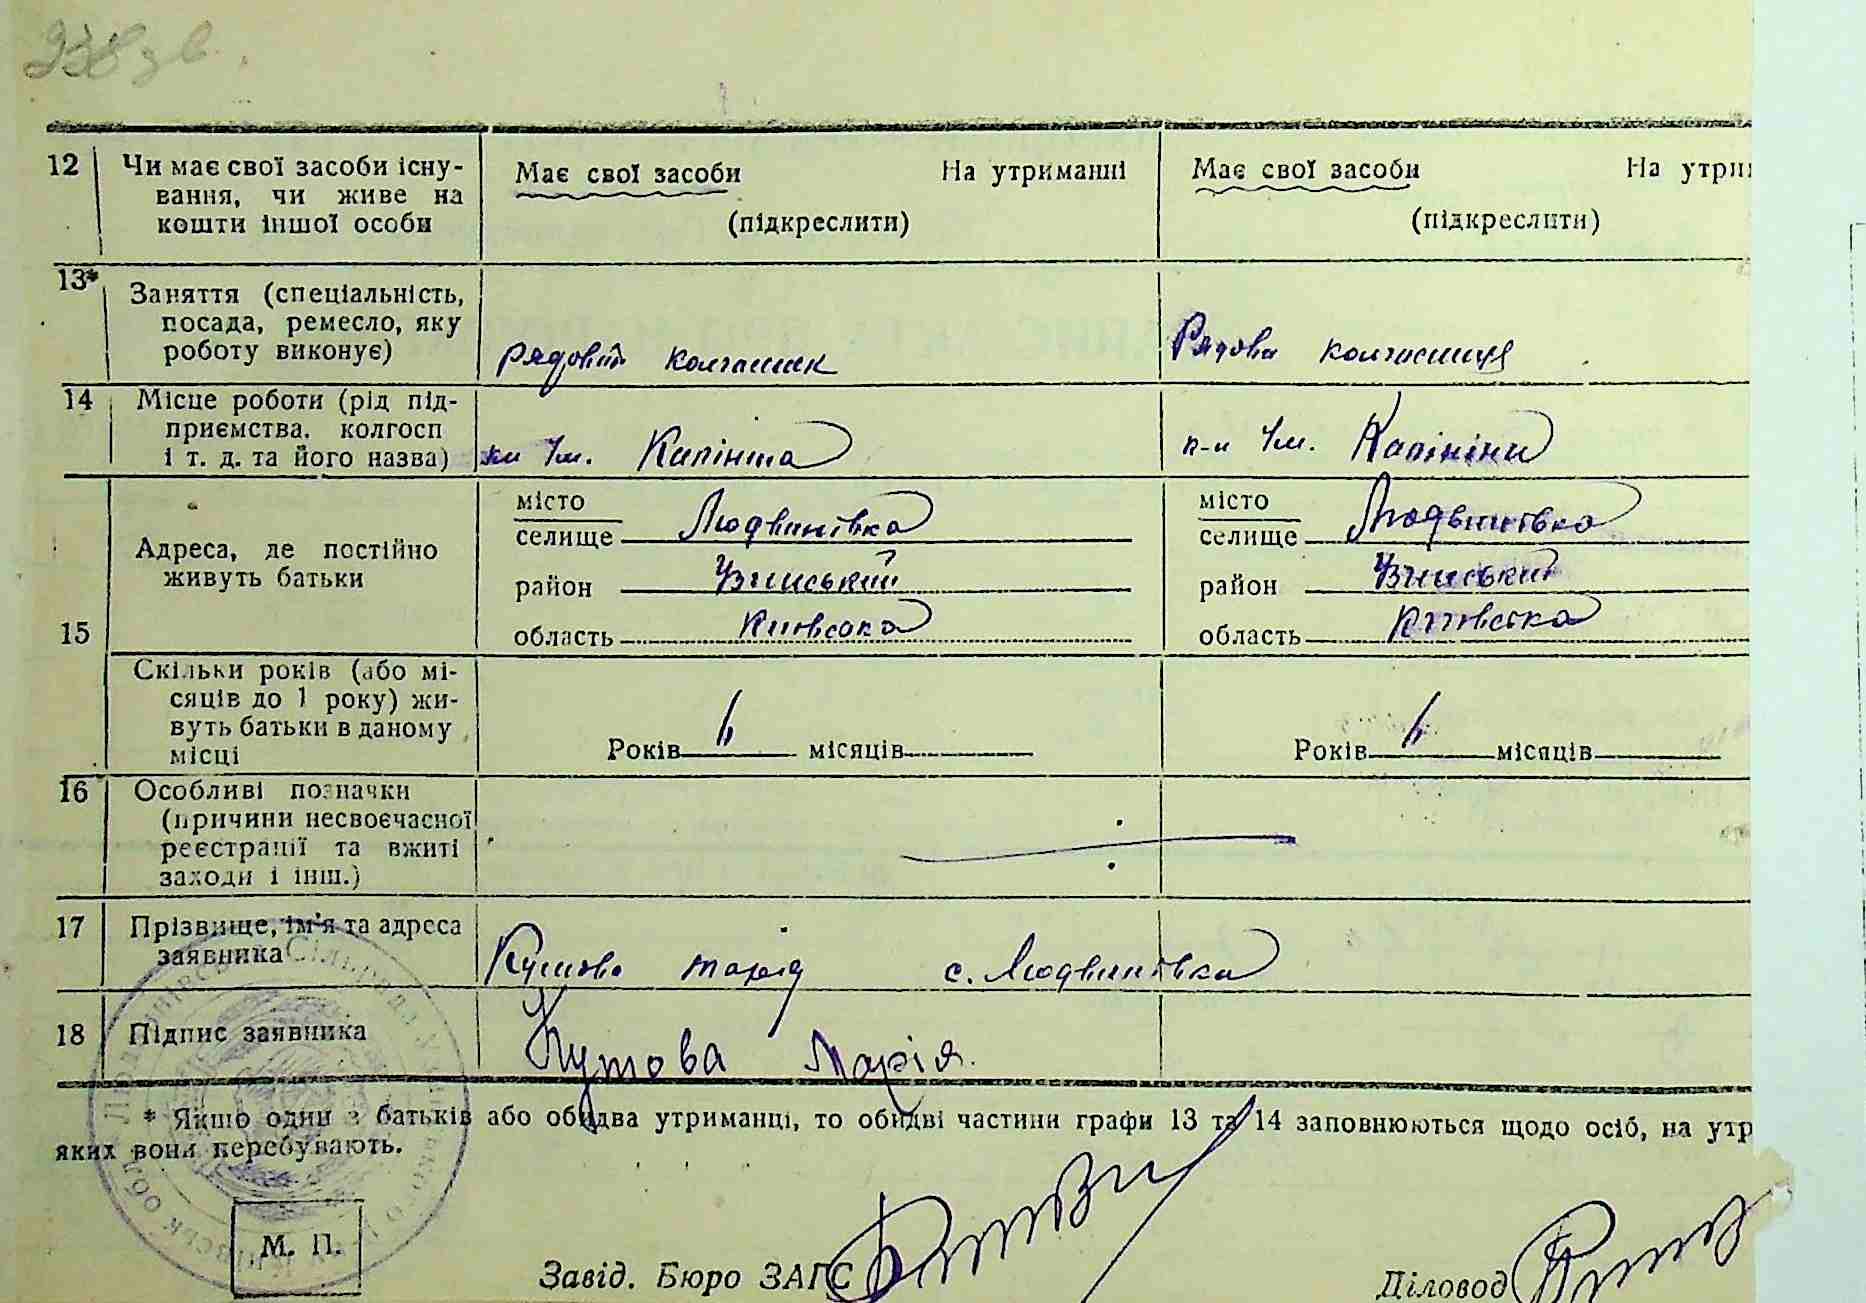 238 зв.
12 Чи має свої засоби існу-
вання, чи живе на
кошти іншої особи
Має свої засоби На утриманні
(підкреслити)
Має свої засоби На утри
(підкреслити)
13* Заняття (спеціальність,
посада, ремесло, яку
роботу виконує)
рядовий колгоспник
Рядова колгоспниця
14 Місце роботи (рід під-
приємства, колгосп
і т. д. та його назва)
ім. Калініна
к-п ім. Калініни
15 Адреса, де постійно
живуть батьки
місто
селище Людвинівка
район Узинський
область Київська
місто
селище Людвинівка
район Узинський
область Київська
Скільки років (або мі-
сяців до 1 року) жи-
вуть батьки в даному
місці
Років місяців
Років місяців
16 Особливі позначки
(причини несвоєчасної
реєстрації та вжиті
заходи і інш.)
17 Прізвище, ім'я та адреса
заявника
Кутова Марія с. Людвинівка
18 Підпис заявника
Кутова Марія.
* Якщо один з батьків або обидва утриманці, то обидві частини графи 13 та 14 заповнюються щодо осіб, на утр
яких вони перебувають.
М. П.
Завід. Бюро ЗАГС
Діловод